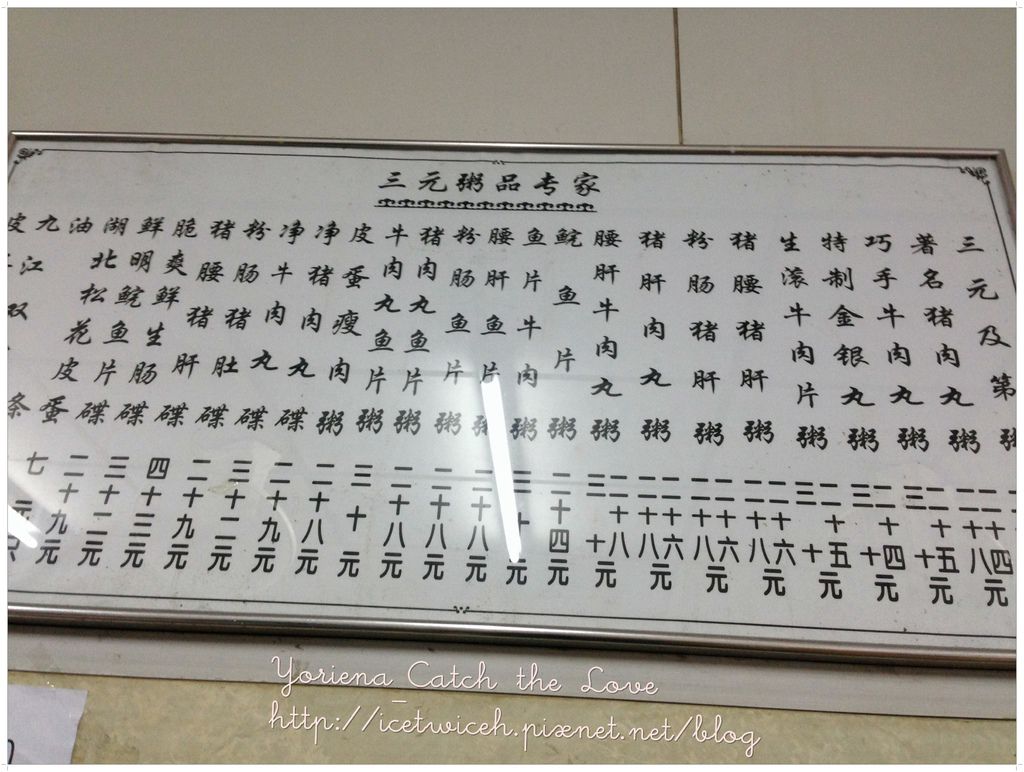 三元粥品专家
三元及第粥
著名猪肉丸粥
巧手牛肉丸粥
特制金银丸粥
生滚牛肉片粥
猪腰猪肝粥
粉肠猪肝粥
猪肝肉丸粥
腰肝牛肉丸粥
鲩鱼片粥
鱼片牛肉粥
腰肝鱼片粥
粉肠鱼片粥
猪肉丸鱼片粥
牛肉丸鱼片粥
皮蛋瘦肉粥
净猪肉丸碟
净牛肉丸碟
粉肠猪肚碟
猪腰猪肝碟
脆爽鲜生肠碟
鲜明鲩鱼片碟
湖北松花皮蛋
油条
九江双
二十四 二十八元
二十五 三十元
二十四 三十元
二十五 三十元
二十六 二十八元
二十六 二十八元
二十六 二十八元
二十八 三十元
二十四元
三十元
二十八元
二十八元
二十八元
三十元
二十八元
二十九元
三十二元
二十九元
四十三元
三十二元
二十九元
七元
Yoriena_Catch the Love
http://icetwiceh.pixnet.net/blog